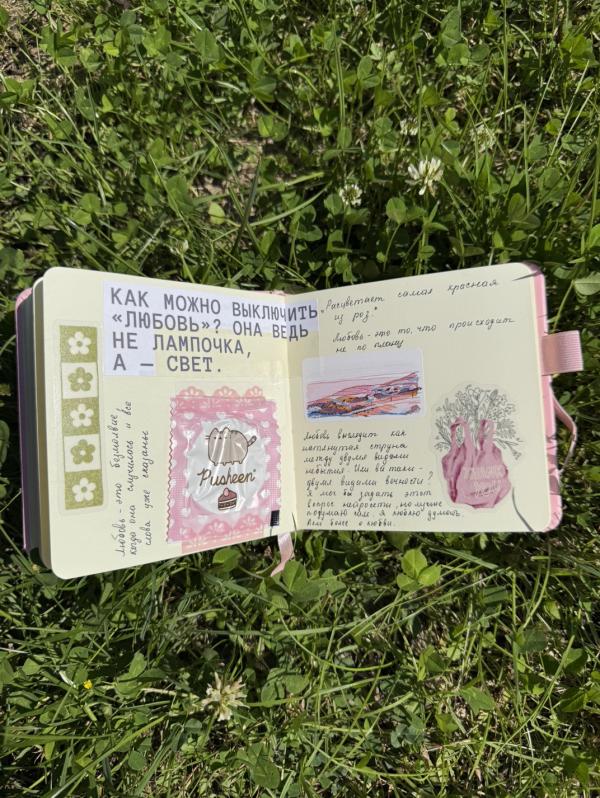 КАК МОЖНО ВЫКЛЮЧИТЬ
«ЛЮБОВЬ»? ОНА ВЕДЬ
НЕ ЛАМПОЧКА,
А — СВЕТ.
Любовь - это безмолвие,
когда оно случилось и все
слова уже сказаны
Pusheen
"Расцветает самая красная
из роз."
Любовь - это то, что происходит
не по плану
Любовь выглядит как
натянутая струна
между двумя видами
небытия. Или всё таки -
двумя видами вечности?
Я мог бы задать этот
вопрос нейросети, но лучше
подумаю сам. Я люблю думать.
Тем более о любви.